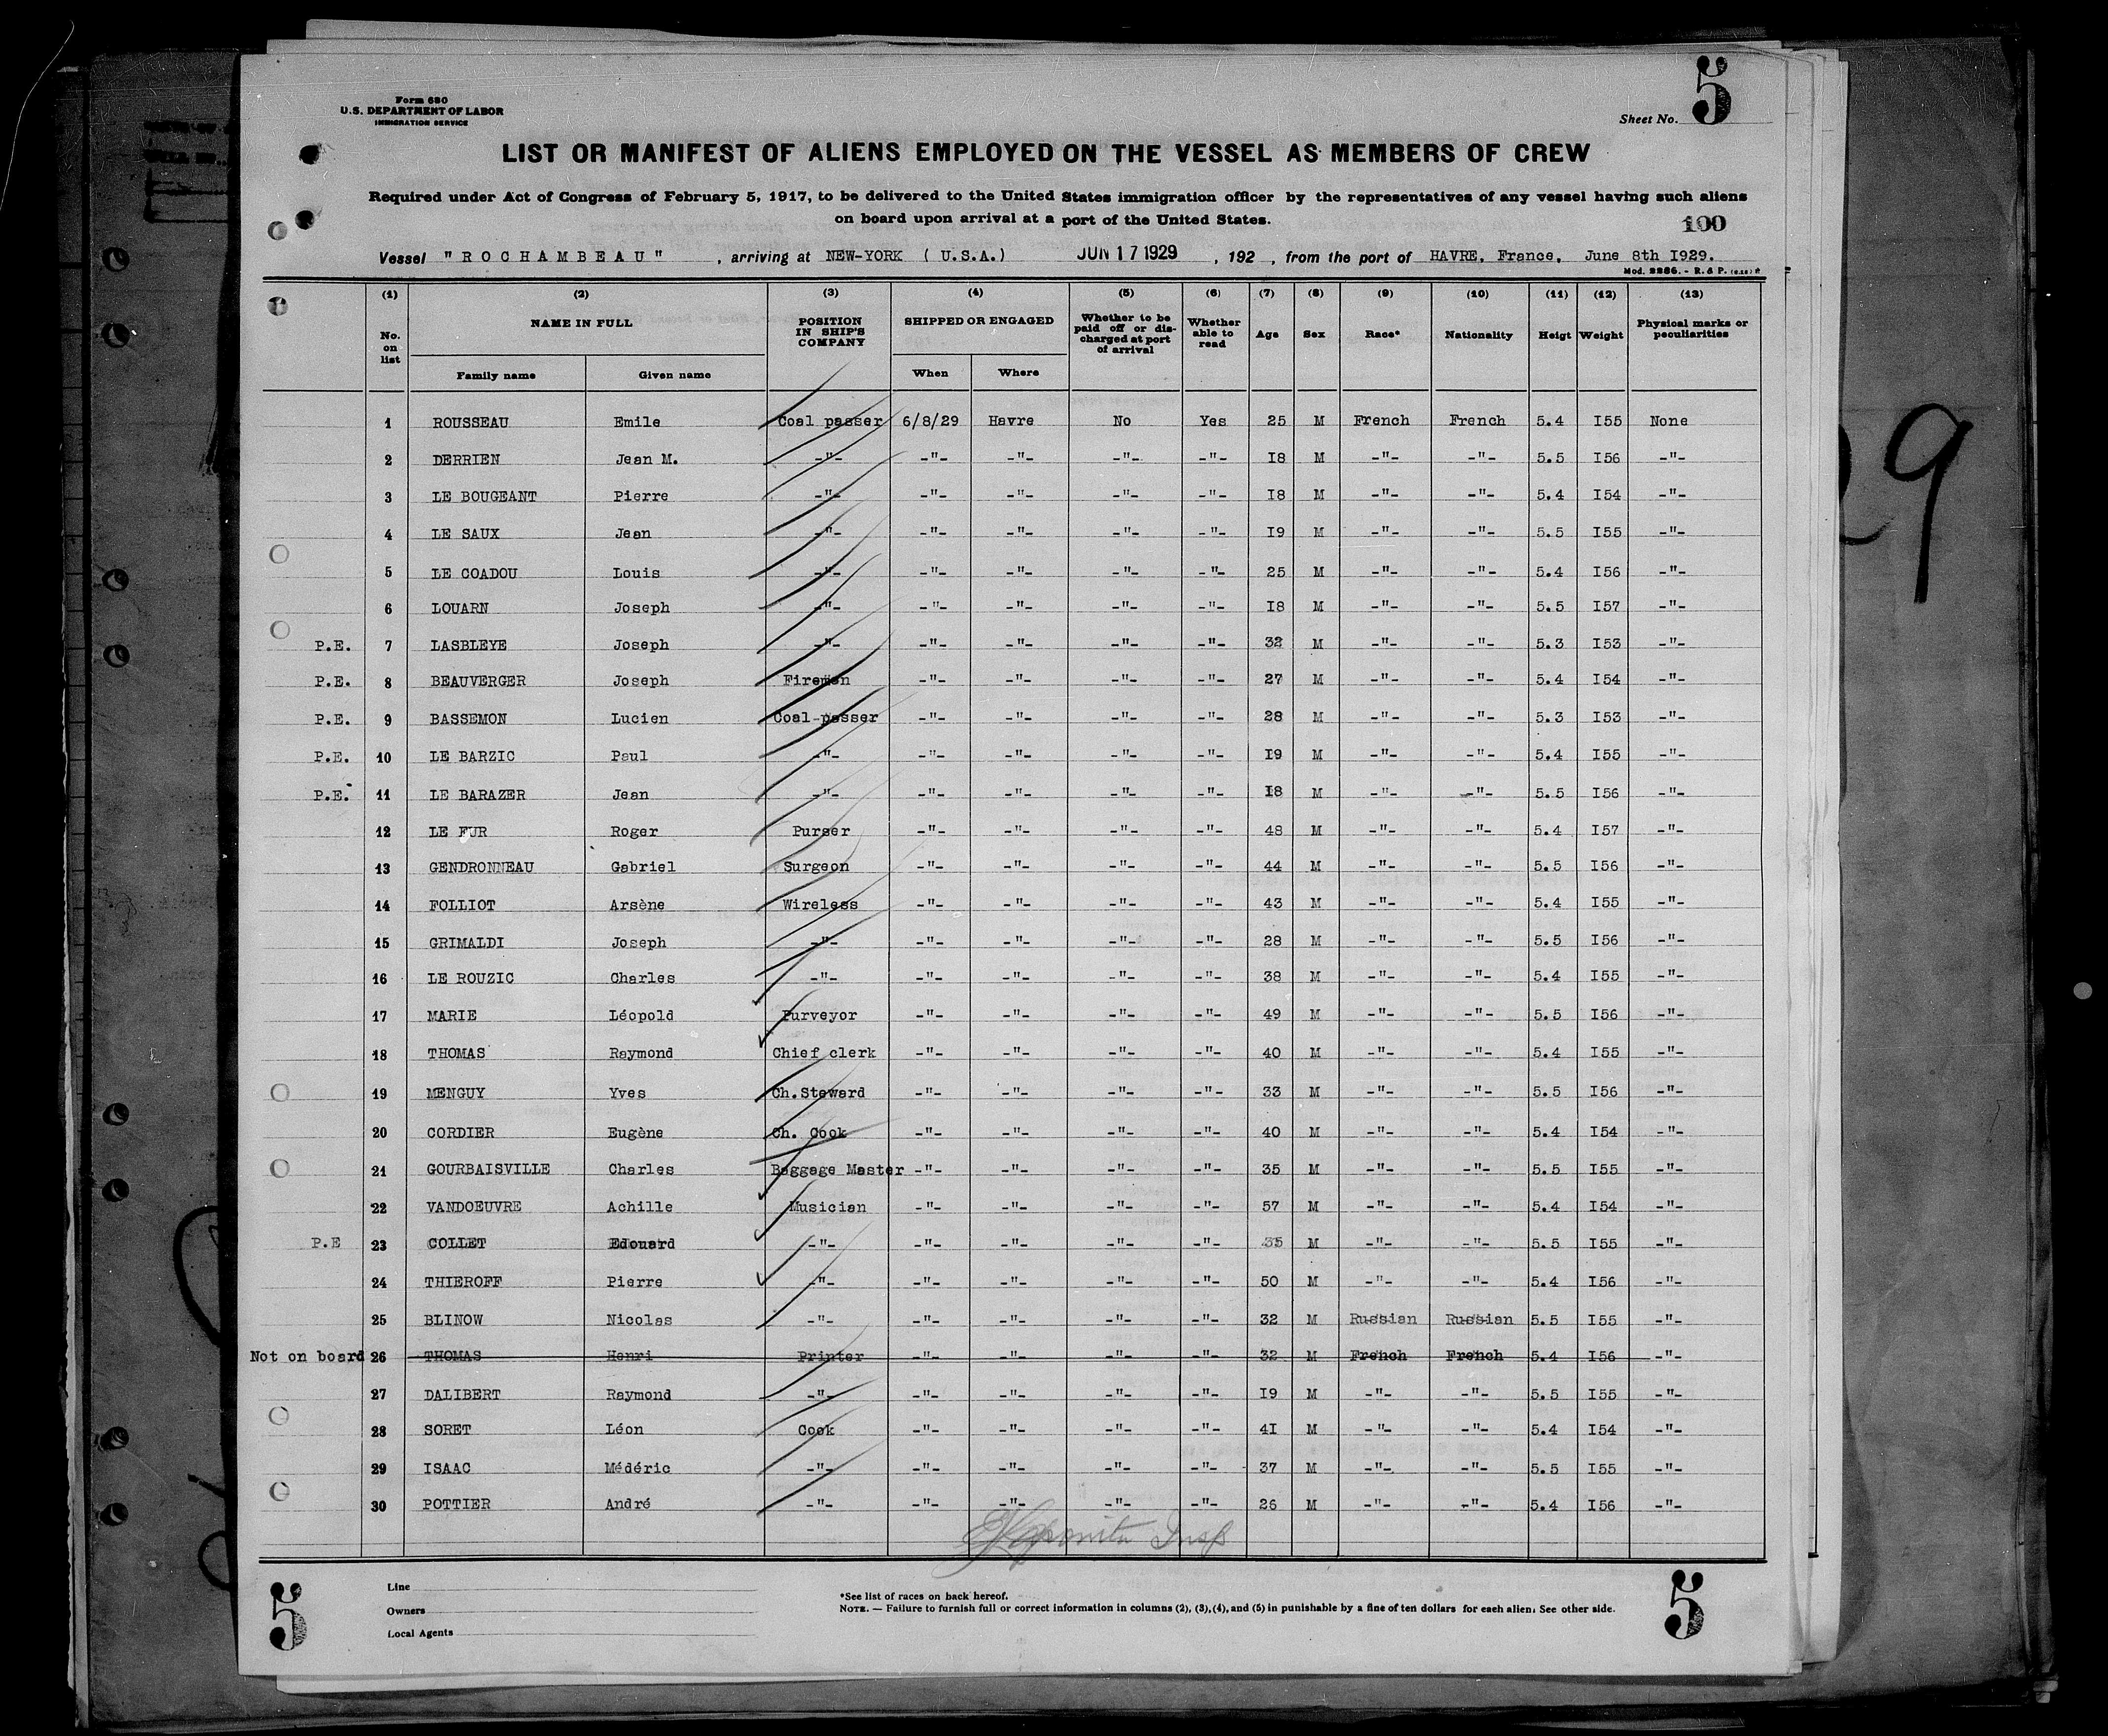 Form 680
U.S. DEPARTMENT OF LABOR
IMMIGRATION SERVICE
Sheet No. 5
LIST OR MANIFEST OF ALIENS EMPLOYED ON THE VESSEL AS MEMBERS OF CREW
Required under Act of Congress of February 5, 1917, to be delivered to the United States immigration officer by the representatives of any vessel having such aliens
on board upon arrival at a port of the United States.
100
Vessel "ROCHAMBEAU" , arriving at NEW-YORK (U.S.A.) JUN 17 1929 , 192 , from the port of HAVRE, France, June 8th I929.
Mod. 2286. - R. & P.
(1) (2) (3) (4) (5) (6) (7) (8) (9) (10) (11) (12) (13)
No. on list NAME IN FULL Family name Given name POSITION IN SHIP'S COMPANY SHIPPED OR ENGAGED When Where Whether to be paid off or discharged at port of arrival Whether able to read Age Sex Race* Nationality Heigt Weight Physical marks or peculiarities
1 ROUSSEAU Emile Coal passer 6/8/29 Havre No Yes 25 M French French 5.4 I55 None
2 DERRIEN Jean M. -"- -"- -"- -"- -"- I8 M -"- -"- 5.5 I56 -"-
3 LE BOUGEANT Pierre -"- -"- -"- -"- -"- I8 M -"- -"- 5.4 I54 -"-
4 LE SAUX Jean -"- -"- -"- -"- -"- I9 M -"- -"- 5.5 I55 -"-
5 LE COADOU Louis -"- -"- -"- -"- -"- 25 M -"- -"- 5.4 I56 -"-
6 LOUARN Joseph -"- -"- -"- -"- -"- I8 M -"- -"- 5.5 I57 -"-
P.E. 7 LASBLEYE Joseph -"- -"- -"- -"- -"- 32 M -"- -"- 5.3 I53 -"-
P.E. 8 BEAUVERGER Joseph Firemen -"- -"- -"- -"- 27 M -"- -"- 5.4 I54 -"-
P.E. 9 BASSEMON Lucien Coal passer -"- -"- -"- -"- 28 M -"- -"- 5.3 I53 -"-
P.E. 10 LE BARZIC Paul -"- -"- -"- -"- -"- I9 M -"- -"- 5.4 I55 -"-
P.E. 11 LE BARAZER Jean -"- -"- -"- -"- -"- I8 M -"- -"- 5.5 I56 -"-
12 LE FUR Roger Purser -"- -"- -"- -"- 48 M -"- -"- 5.4 I57 -"-
13 GENDRONNEAU Gabriel Surgeon -"- -"- -"- -"- 44 M -"- -"- 5.5 I56 -"-
14 FOLLIOT Arsène Wireless -"- -"- -"- -"- 43 M -"- -"- 5.4 I55 -"-
15 GRIMALDI Joseph -"- -"- -"- -"- -"- 28 M -"- -"- 5.5 I56 -"-
16 LE ROUZIC Charles -"- -"- -"- -"- -"- 38 M -"- -"- 5.4 I55 -"-
17 MARIE Léopold Purveyor -"- -"- -"- -"- 49 M -"- -"- 5.5 I56 -"-
18 THOMAS Raymond Chief clerk -"- -"- -"- -"- 40 M -"- -"- 5.4 I55 -"-
19 MENGUY Yves Ch.Steward -"- -"- -"- -"- 33 M -"- -"- 5.5 I56 -"-
20 CORDIER Eugène Ch. Cook -"- -"- -"- -"- 40 M -"- -"- 5.4 I54 -"-
21 GOURBAISVILLE Charles Baggage Master -"- -"- -"- -"- 35 M -"- -"- 5.5 I55 -"-
22 VANDOEUVRE Achille Musician -"- -"- -"- -"- 57 M -"- -"- 5.4 I54 -"-
P.E 23 COLLET Edouard -"- -"- -"- -"- -"- 35 M -"- -"- 5.5 I55 -"-
24 THIEROFF Pierre -"- -"- -"- -"- -"- 50 M -"- -"- 5.4 I56 -"-
25 BLINOW Nicolas -"- -"- -"- -"- -"- 32 M Russian Russian 5.5 I55 -"-
Not on board 26 THOMAS Henri Printer -"- -"- -"- -"- 32 M French French 5.4 I56 -"-
27 DALIBERT Raymond -"- -"- -"- -"- -"- I9 M -"- -"- 5.5 I55 -"-
28 SORET Léon Cook -"- -"- -"- -"- 4I M -"- -"- 5.4 I54 -"-
29 ISAAC Médéric -"- -"- -"- -"- -"- 37 M -"- -"- 5.5 I55 -"-
30 POTTIER André -"- -"- -"- -"- -"- 26 M -"- -"- 5.4 I56 -"-
Insp
Line
Owners
Local Agents
*See list of races on back hereof.
NOTE. — Failure to furnish full or correct information in columns (2), (3), (4), and (5) in punishable by a fine of ten dollars for each alien. See other side.
5
5
9